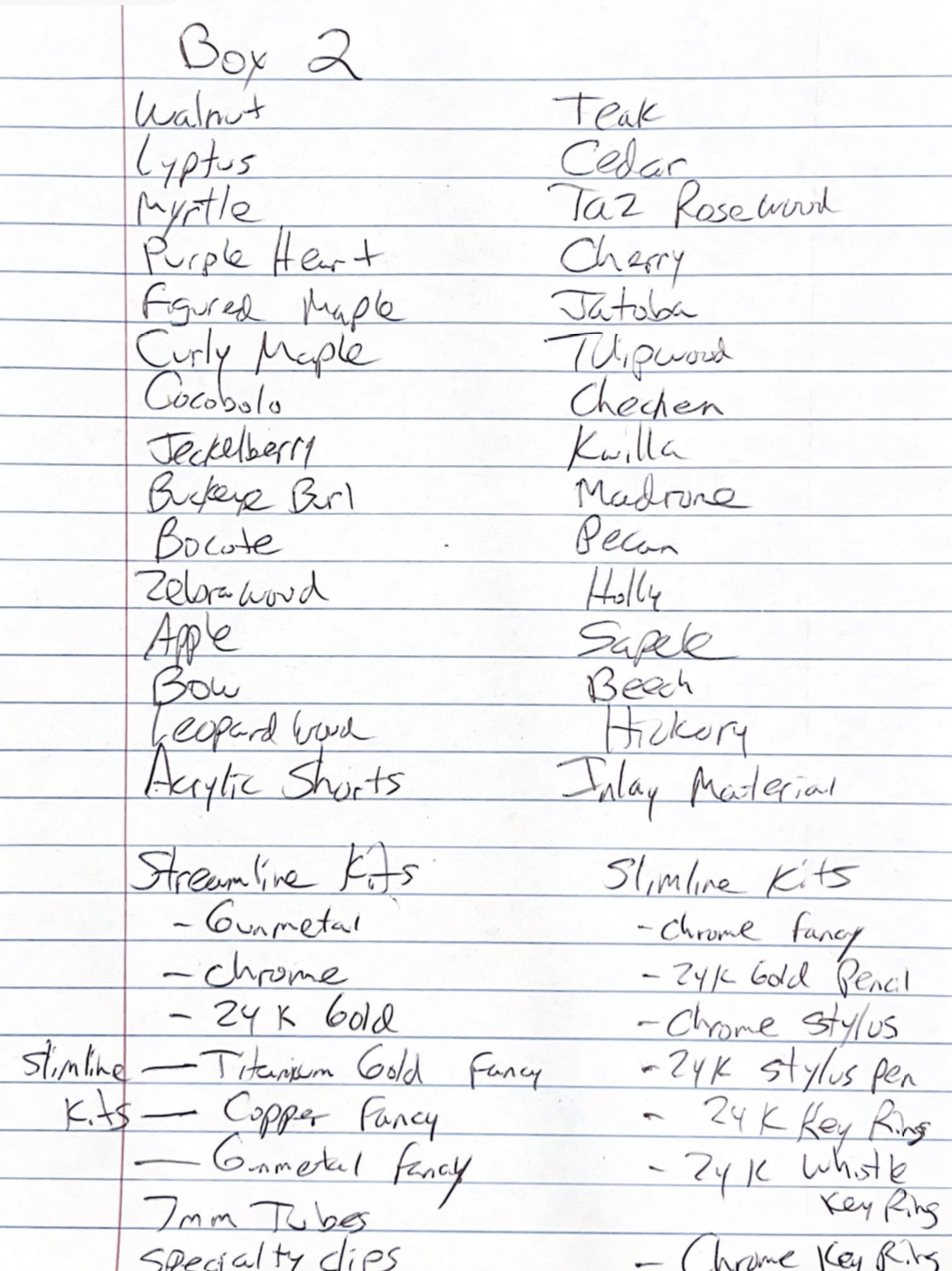 Box 2
Walnut
Lyptus
Myrtle
Purple Heart
Figured Maple
Curly Maple
Cocobolo
Jeckelberry
Buckeye Burl
Bocote
Zebrawood
Apple
Bow
Leopard wood
Acrylic Shorts
Teak
Cedar
Taz Rosewood
Cherry
Jatoba
Tulipwood
Chechen
Kwilla
Madrone
Pecan
Holly
Sapele
Beech
Hickory
Inlay Material
Streamline Kits
- Gunmetal
- Chrome
- 24 K Gold
Slimline Kits
— Titanium Gold Fancy
— Copper Fancy
— Gunmetal Fancy
7mm Tubes
specialty clips
Slimline Kits
- Chrome fancy
- 24K Gold Pencil
- Chrome stylus
- 24K stylus pen
- 24K Key Ring
- 24K Whistle
Key Ring
- Chrome Key Ring